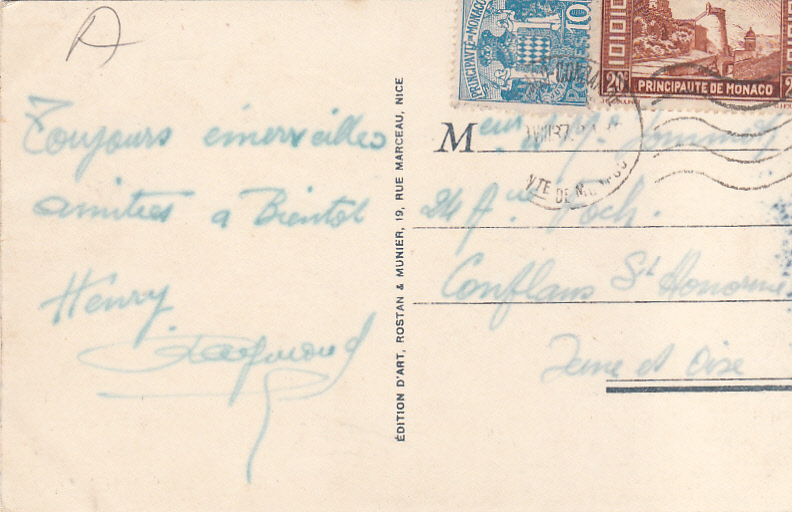 A
Toujours émerveillés
amitiés a Bientot
Henry
Raymond
ÉDITION D'ART, ROSTAN & MUNIER, 19, RUE MARCEAU, NICE
PRINCIPAUTÉ DE MONACO
10
20c
PRINCIPAUTE DE MONACO
2
PTE DE MONACO
Meur et Me
24 Aue Foch.
Conflans St Honorine
Seine et Oise